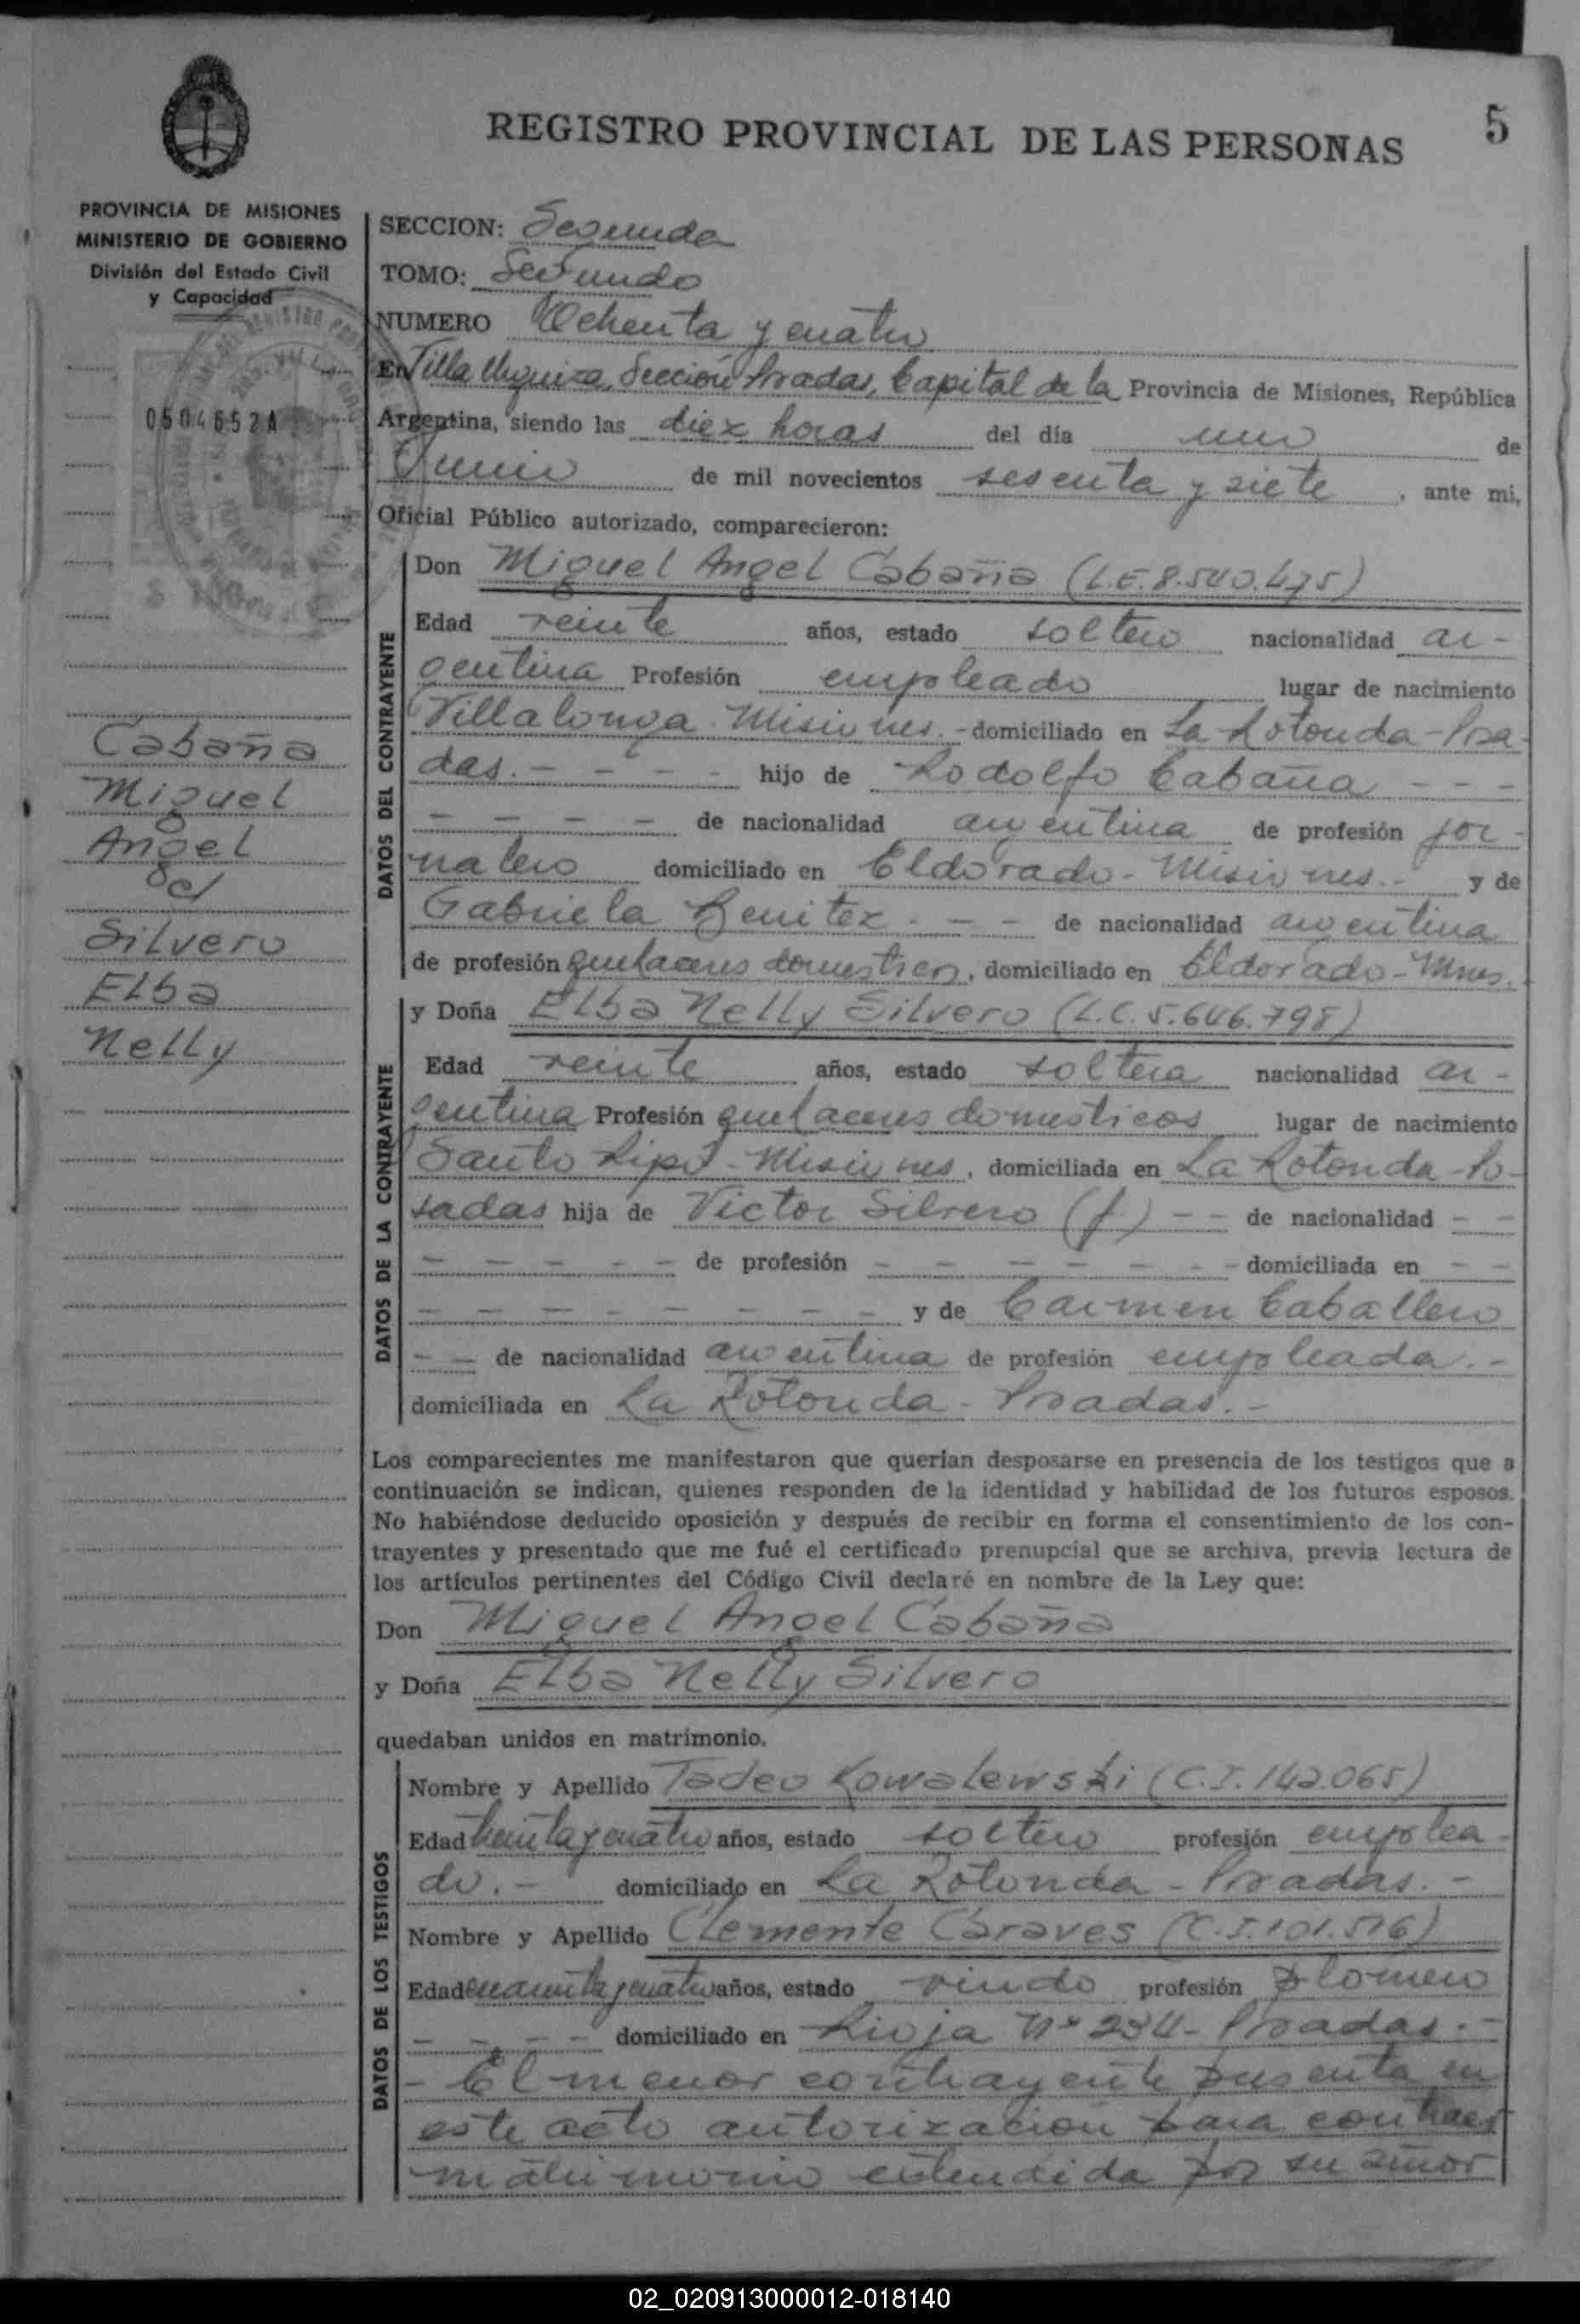 REGISTRO PROVINCIAL DE LAS PERSONAS
5
PROVINCIA DE MISIONES
MINISTERIO DE GOBIERNO
División del Estado Civil
y Capacidad
0504652A
$ 100
Cabaña
Miguel
Angel
c/
Silvero
Elba
Nelly
SECCION: Segunda
TOMO: Segundo
NUMERO Ochenta y cuatro
En Villa Urquiza, Sección Posadas, Capital de la Provincia de Misiones, República
Argentina, siendo las diez horas del día uno de
Junio de mil novecientos sesenta y siete, ante mi,
Oficial Público autorizado, comparecieron:
DATOS DEL CONTRAYENTE
Don Miguel Angel Cabaña (L.E. 8.540.475)
Edad veinte años, estado soltero nacionalidad ar-
gentina Profesión empleado lugar de nacimiento
Villalonga Misiones.- domiciliado en La Rotonda-Posa-
das.- - - - - hijo de Rodolfo Cabaña - - -
- - - - - de nacionalidad argentina de profesión jor-
nalero domiciliado en Eldorado-Misiones.- y de
Gabriela Benitez - - - de nacionalidad argentina
de profesión quehaceres domesticos, domiciliado en Eldorado-Mnes.
DATOS DE LA CONTRAYENTE
y Doña Elba Nelly Silvero (L.C. 5.646.798)
Edad veinte años, estado soltera nacionalidad ar-
gentina Profesión quehaceres domesticos lugar de nacimiento
Santo Pipó-Misiones, domiciliada en La Rotonda-Po-
sadas hija de Victor Silvero (f.) - - de nacionalidad - -
- - - - - de profesión - - - - - - - domiciliada en - -
- - - - - - - - - y de Carmen Caballero
- - de nacionalidad argentina de profesión empleada.-
domiciliada en La Rotonda-Posadas.-
Los comparecientes me manifestaron que querían desposarse en presencia de los testigos que a
continuación se indican, quienes responden de la identidad y habilidad de los futuros esposos.
No habiéndose deducido oposición y después de recibir en forma el consentimiento de los con-
trayentes y presentado que me fué el certificado prenupcial que se archiva, previa lectura de
los artículos pertinentes del Código Civil declaré en nombre de la Ley que:
Don Miguel Angel Cabaña
y Doña Elba Nelly Silvero
quedaban unidos en matrimonio.
DATOS DE LOS TESTIGOS
Nombre y Apellido Tadeo Kowalewski (C.I. 142.065)
Edad treinta y cuatro años, estado soltero profesión emplea-
do.- domiciliado en La Rotonda-Posadas.-
Nombre y Apellido Clemente Caraves (C.I. 101.516)
Edad cuarenta y cuatro años, estado viudo profesión plomero
- - - - domiciliado en Rioja Nº 234-Posadas.-
- El menor contrayente presenta en
este acto autorización para contraer
matrimonio extendida por su señor
02_020913000012-018140